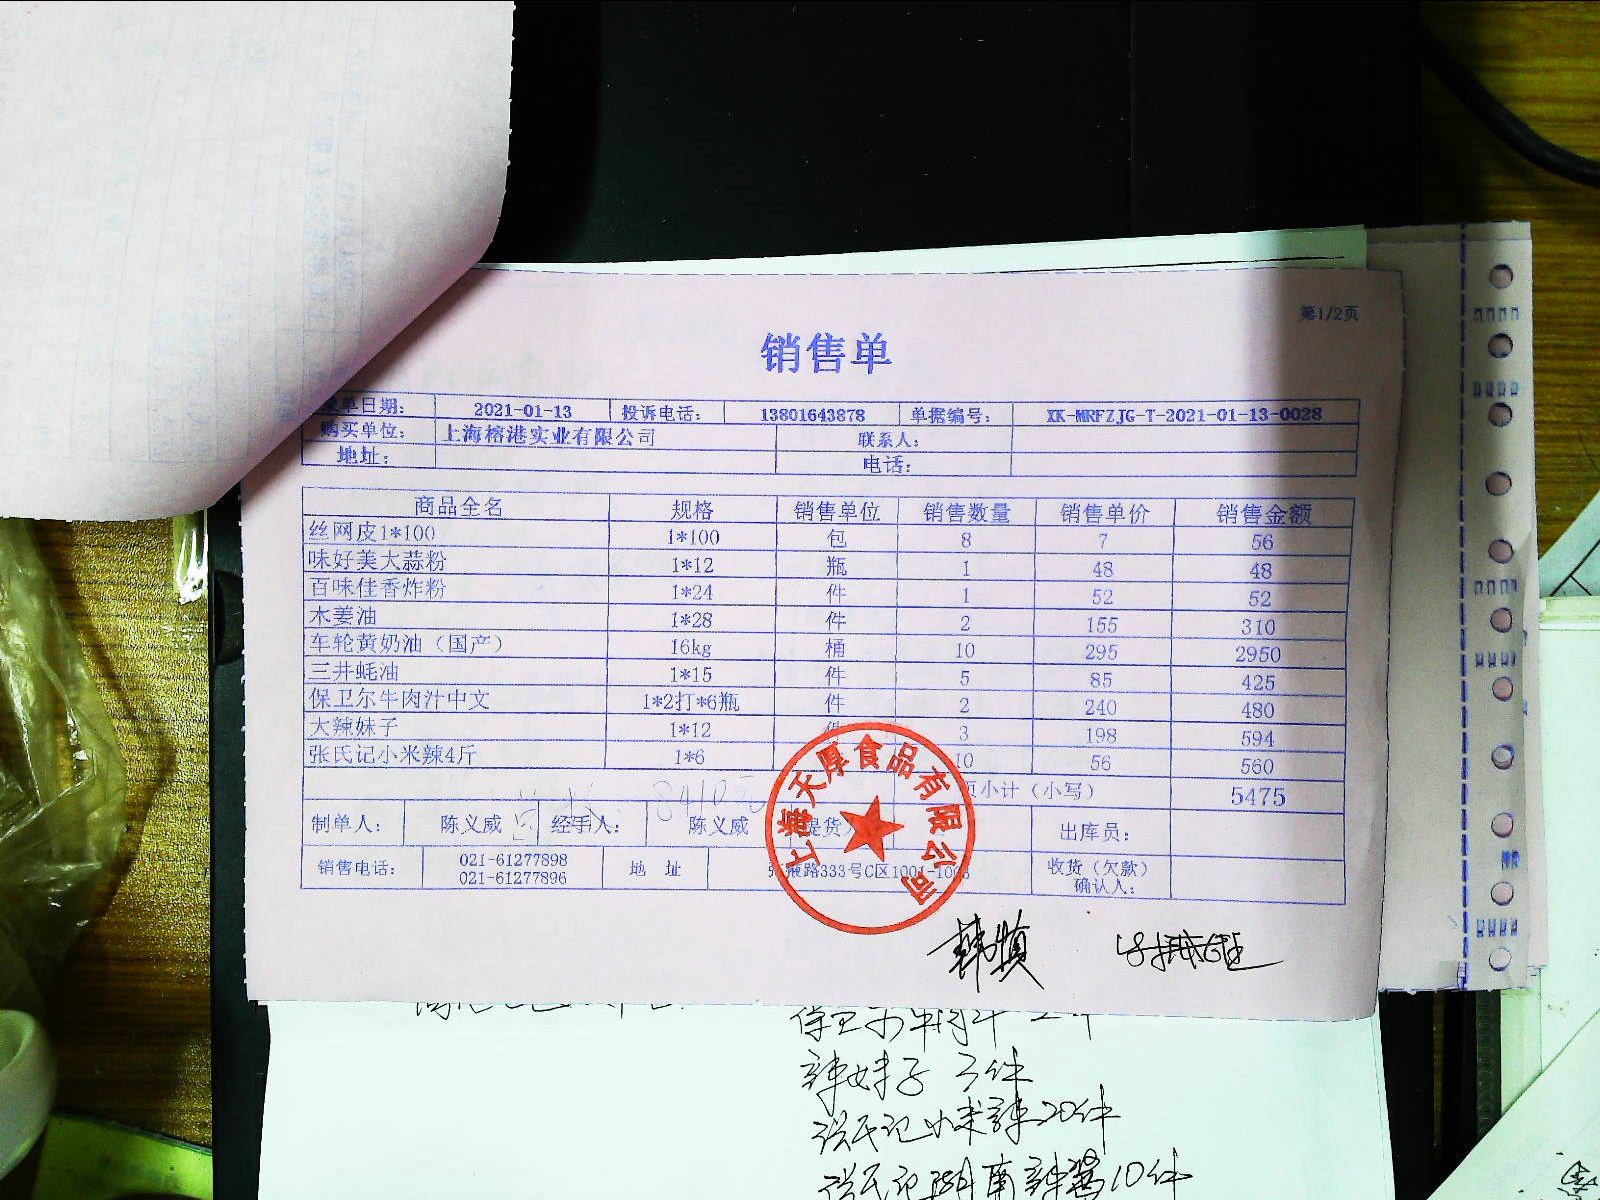 第1/2页
销售单
录单日期： 2021-01-13 投诉电话： 13801643878 单据编号： XK-MRFZJG-T-2021-01-13-0028
购买单位： 上海榕港实业有限公司 联系人：
地址： 电话：
商品全名 规格 销售单位 销售数量 销售单价 销售金额
丝网皮1*100 1*100 包 8 7 56
味好美大蒜粉 1*12 瓶 1 48 48
百味佳香炸粉 1*24 件 1 52 52
木姜油 1*28 件 2 155 310
车轮黄奶油（国产） 16kg 桶 10 295 2950
三井蚝油 1*15 件 5 85 425
保卫尔牛肉汁中文 1*2打*6瓶 件 2 240 480
大辣妹子 1*12 件 3 198 594
张氏记小米辣4斤 1*6 10 56 560
页小计（小写） 5475
8410元
制单人： 陈义威 经手人： 陈义威 提货人 出库员：
销售电话： 021-61277898 地 址 路333号C区1001-1003 收货（欠款）
021-61277896 确认人：
上海天厚食品有限公司
保卫尔牛肉汁 2件
辣妹子 3件
张氏记小米辣20件
张氏记湖南辣酱10件